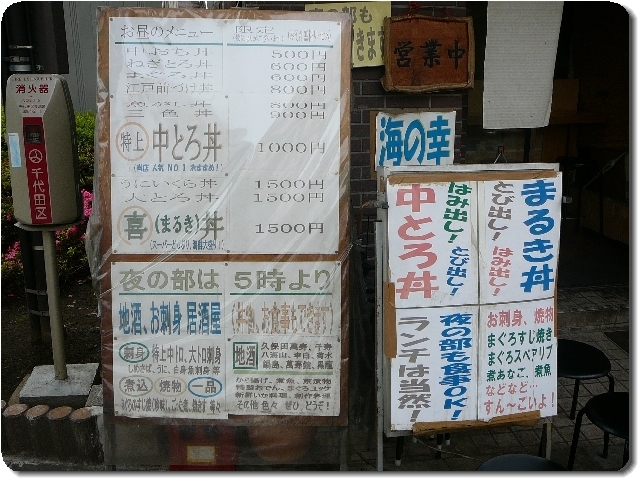 消火器
千代田区
お昼のメニュー
限定
中おち丼 500円
ねぎとろ丼 600円
まぐろ丼 600円
江戸前づけ丼 800円
800円
三色丼 900円
特上 中とろ丼 1000円
うにいくら丼 1500円
大とろ丼 1500円
喜(まるき)丼 1500円
夜の部は 5時より
地酒、お刺身 居酒屋
刺身 特上中トロ、大トロ刺身
しめさば、うに、白身魚刺身 等
煮込 焼物 一品
地酒
久保田萬寿、千寿
八海山
その他 色々 ぜひ どうぞ!
営業中
海の幸
まるき丼
とび出し! はみ出し!
はみ出し! とび出し!
中とろ丼
お刺身、焼物
まぐろすじ焼き
まぐろスペアリブ
煮あなご、煮魚
などなど…
すん〜ごいよ!
夜の部も食事OK!
ランチは当然!